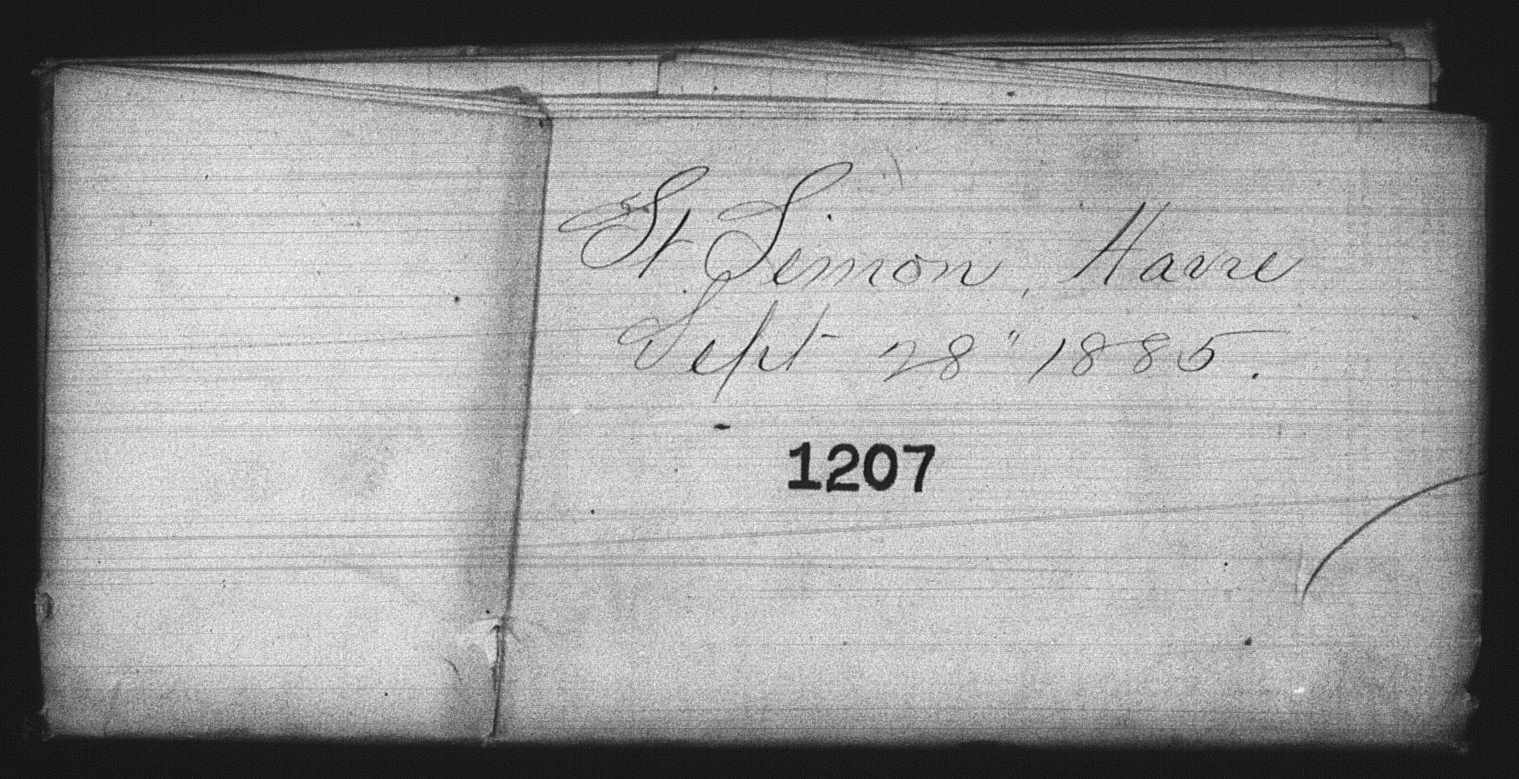 St. Simon, Havre
Sept 28" 1885.
1207